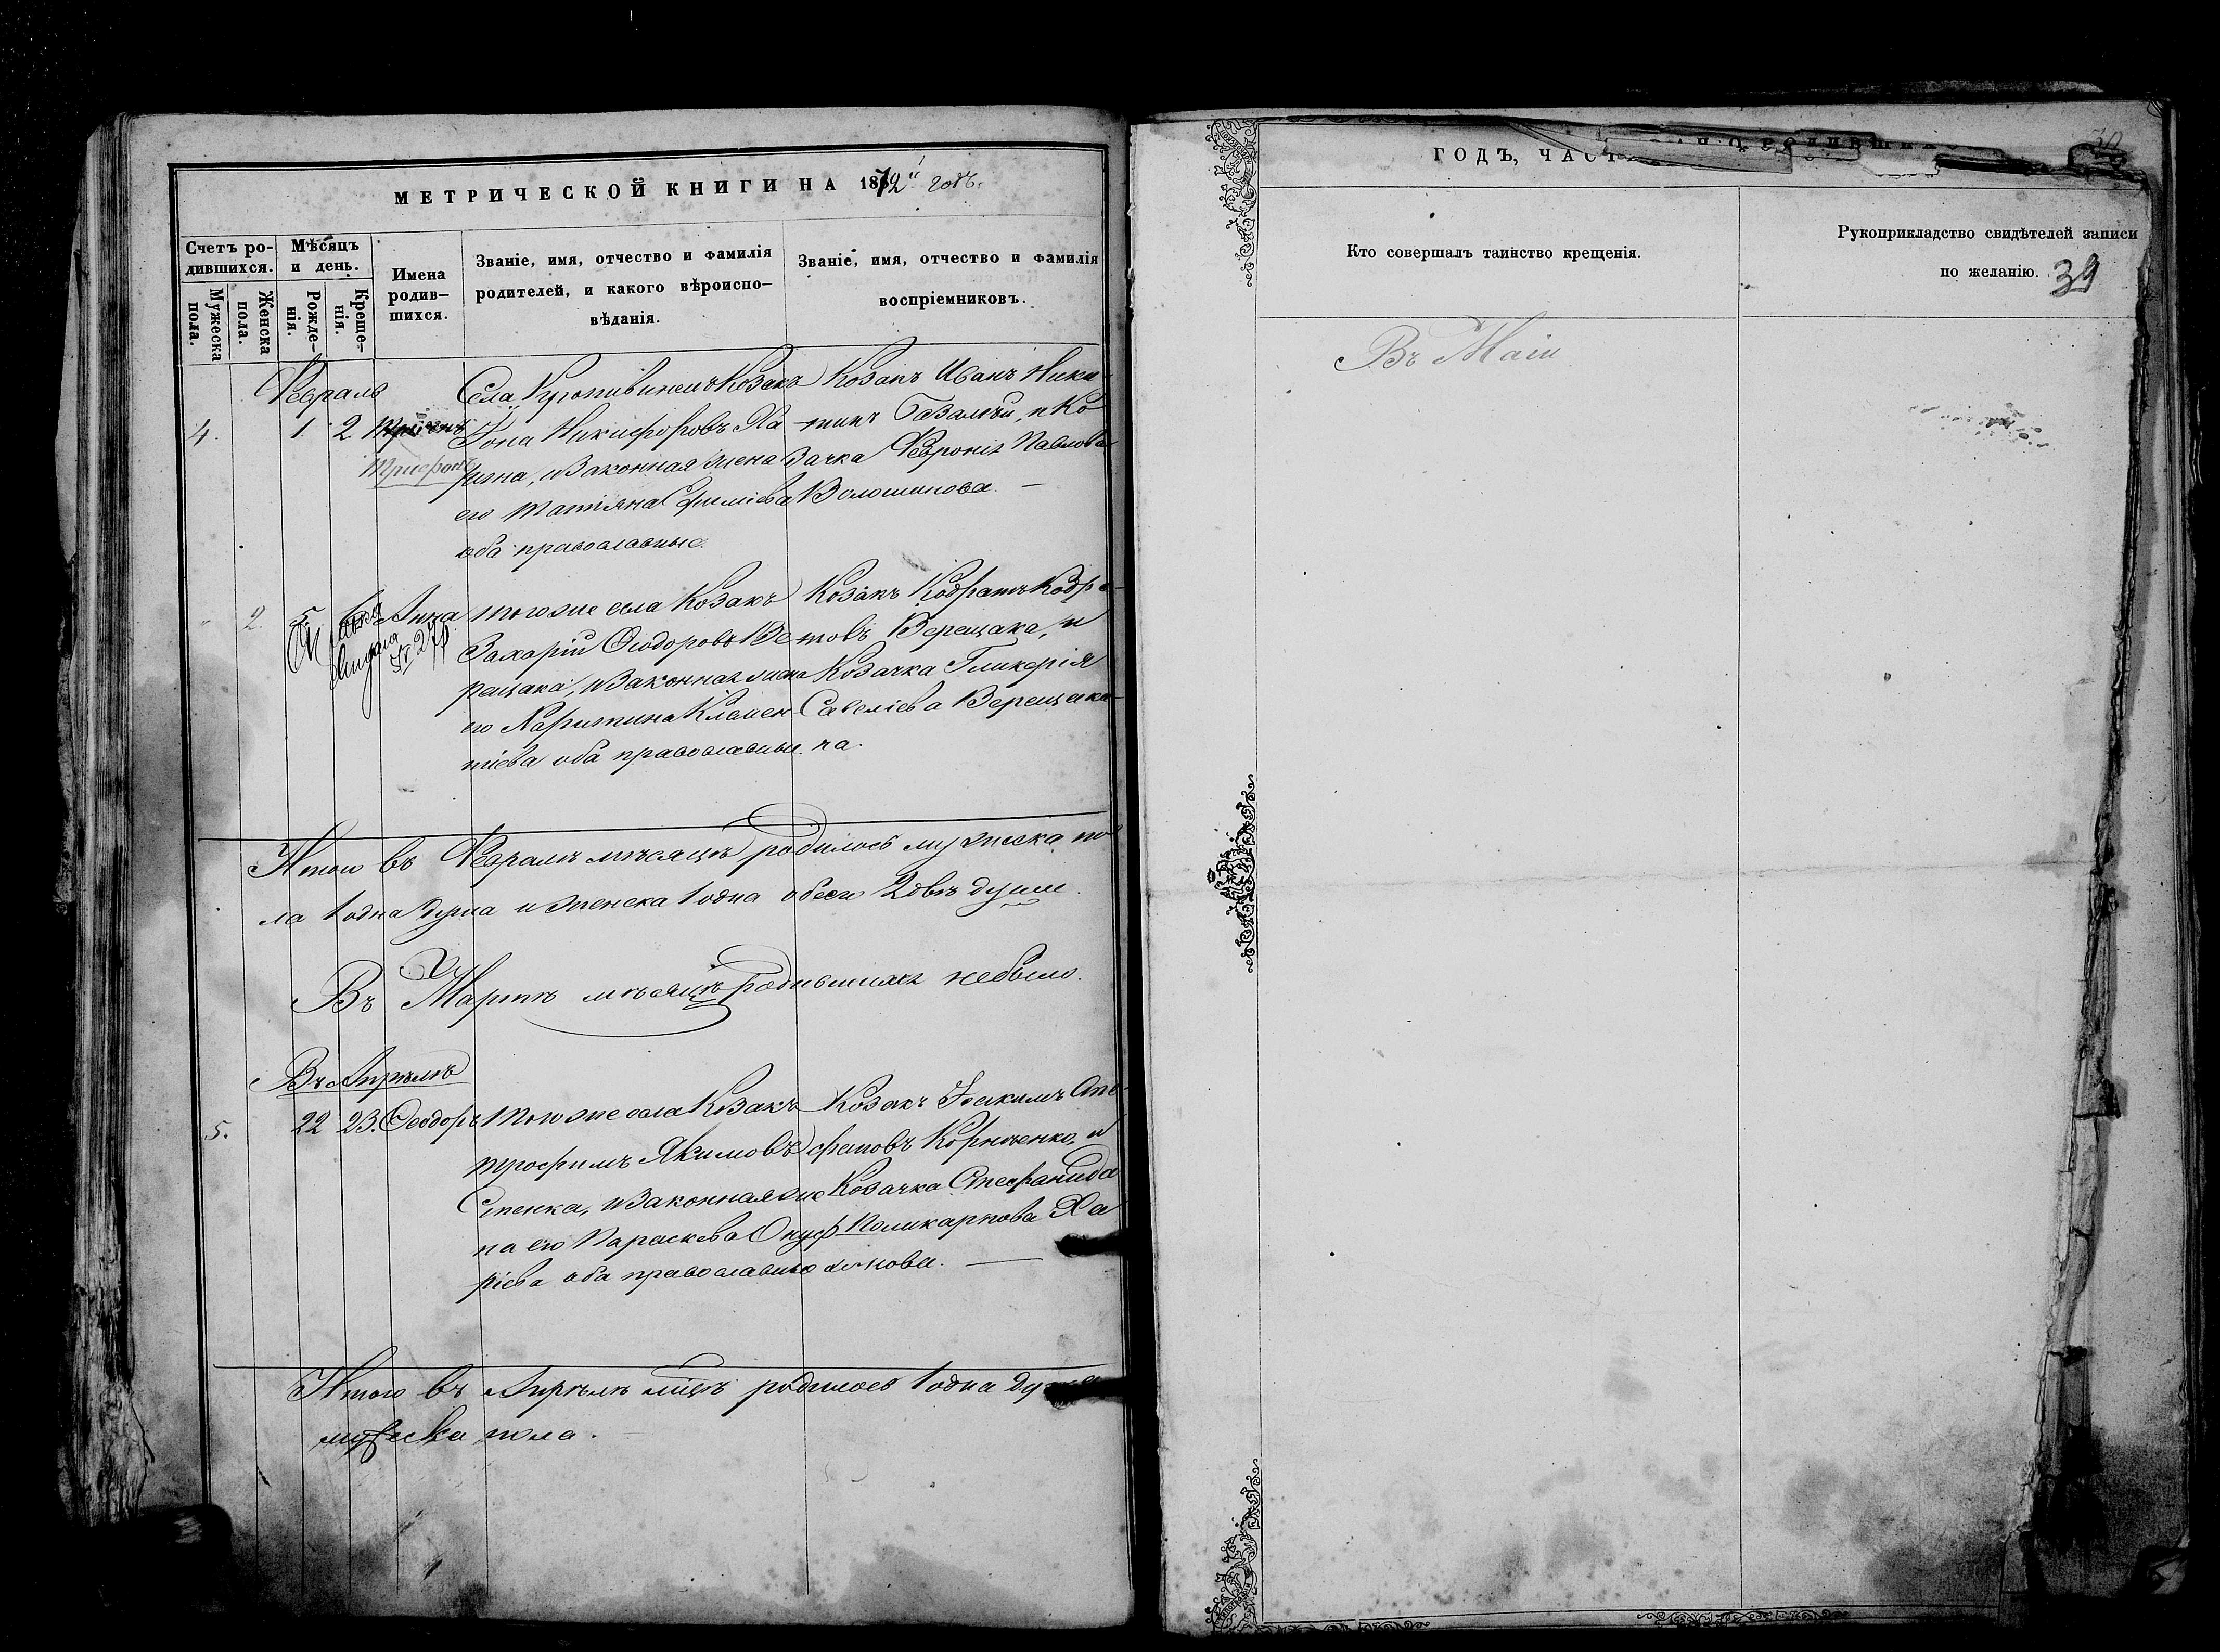 МЕТРИЧЕСКОЙ КНИГИ НА 1872й годъ.
Счетъ ро-
дившихся.
Мужеска
пола.
Женска
пола.
Мѣсяцъ
и день.
Рожде-
нія.
Креще-
нія.
Имена
родив-
шихся.
Званіе, имя, отчество и фамилія
родителей, и какого вѣроиспо-
вѣданія.
Званіе, имя, отчество и фамилія
воспріемниковъ.
Февраль
4. 1. 2.
Трифонъ
Села Козакъ
Іона Никифоровъ Ха-
рина, и законная жена
его Татіяна
оба православные.
Козакъ Иванъ Ники-
тинъ и Ко-
зачка Февронія Павлова
Волошинова. —
2. 5. Анна
№ 270.
Тогоже села Козакъ
Захарій Ѳеодоровъ Ве-
рещака, и законная жена
его Харитина Клемен-
тіева оба православные.
Козакъ Кодратъ Кодра-
товъ Верещака, и
Козачка Гликерія
Савеліева Верещако-
ва.
Итого въ Февралѣ мѣсяцѣ родилось мужеска по-
ла 1 одна душа и женска 1 одна обоего 2 двѣ души.
Въ Мартѣ мѣсяцѣ родившихся небыло.
Въ Апрѣлѣ
5. 22 23. Ѳеодоръ
Тогоже села Козакъ
Трофимъ Якимовъ
Стенка, и законная же-
на его Параскева Онуф-
ріева оба православные
Козакъ Сте-
фановъ Корніенко, и
Козачка Стефанида
Поликарпова Ха-
Итого въ Апрѣлѣ мцѣ родилось 1 одна душа
мужеска пола.
ГОДЪ, ЧАСТ
30
Кто совершалъ таинство крещенія.
Рукоприкладство свидѣтелей записи
по желанію.
39
Въ Маіи